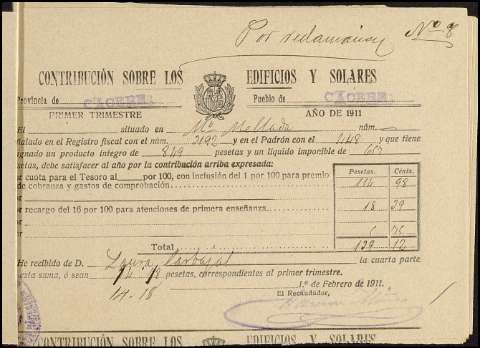 Por reclamación Nº 8
CONTRIBUCIÓN SOBRE LOS EDIFICIOS Y SOLARES
Provincia de CÁCERES Pueblo de CÁCERES
PRIMER TRIMESTRE AÑO DE 1911
El situado en Mellada núm.
ñalado en el Registro fiscal con el núm. 2192 y en el Padrón con el 1148 y que tiene
ignado un producto íntegro de 849 pesetas y un líquido imponible de
setas, debe satisfacer al año por la contribución arriba expresada:
Pesetas. Cénts.
or cuota para el Tesoro al por 100, con inclusión del 1 por 100 para premio
de cobranza y gastos de comprobación 114 98
or
or recargo del 16 por 100 para atenciones de primera enseñanza. 18 39
or
or
Total
He recibido de D. Laura Carbajal la cuarta parte
esta suma, ó sean pesetas, correspondientes al primer trimestre.
1.º de Febrero de 1911.
El Recaudador,
CONTRIBUCIÓN SOBRE LOS EDIFICIOS Y SOLARES